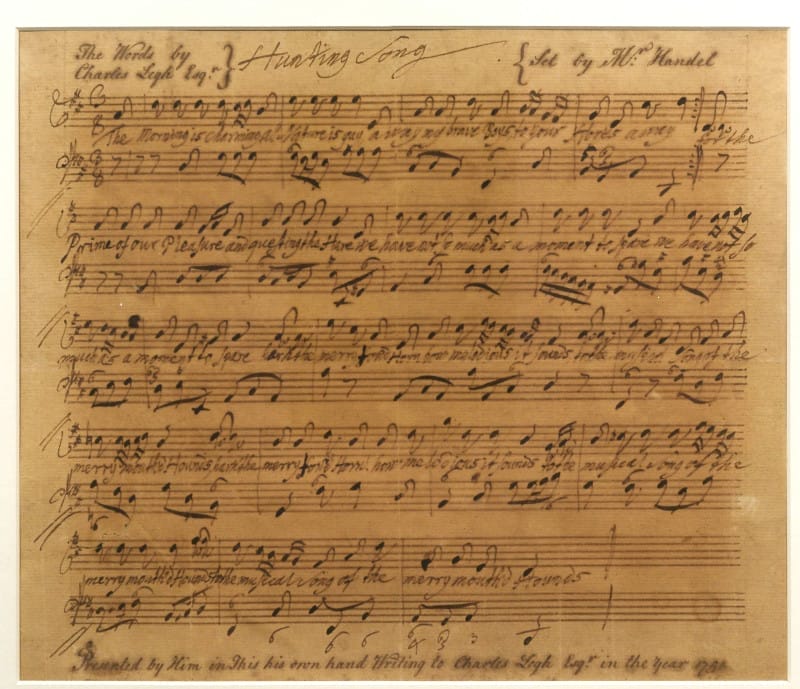 The Words by
Charles Legh Esqr.
Hunting Song
Set by Mr. Handel
The Morning is charming all Nature is gay away my brave Boys to your Horses away for the
Prime of our Pleasure and questing the Hare we have not so much as a moment to spare we have not so
much as a moment to spare hark the merry ton'd Horn how melodious it sounds to the musical song of the
merry mouth'd Hounds hark the merry ton'd Horn how melodious it sounds to the musical song of the
merry mouth'd Hounds to the musical song of the merry mouth'd Hounds
6 6 6 4 3 3
Presented by Him in This his own hand Writing to Charles Legh Esqr. in the Year